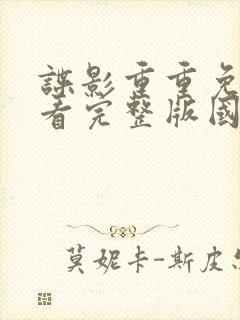 諜影重重免
看完整版國
莫妮卡-斯皮